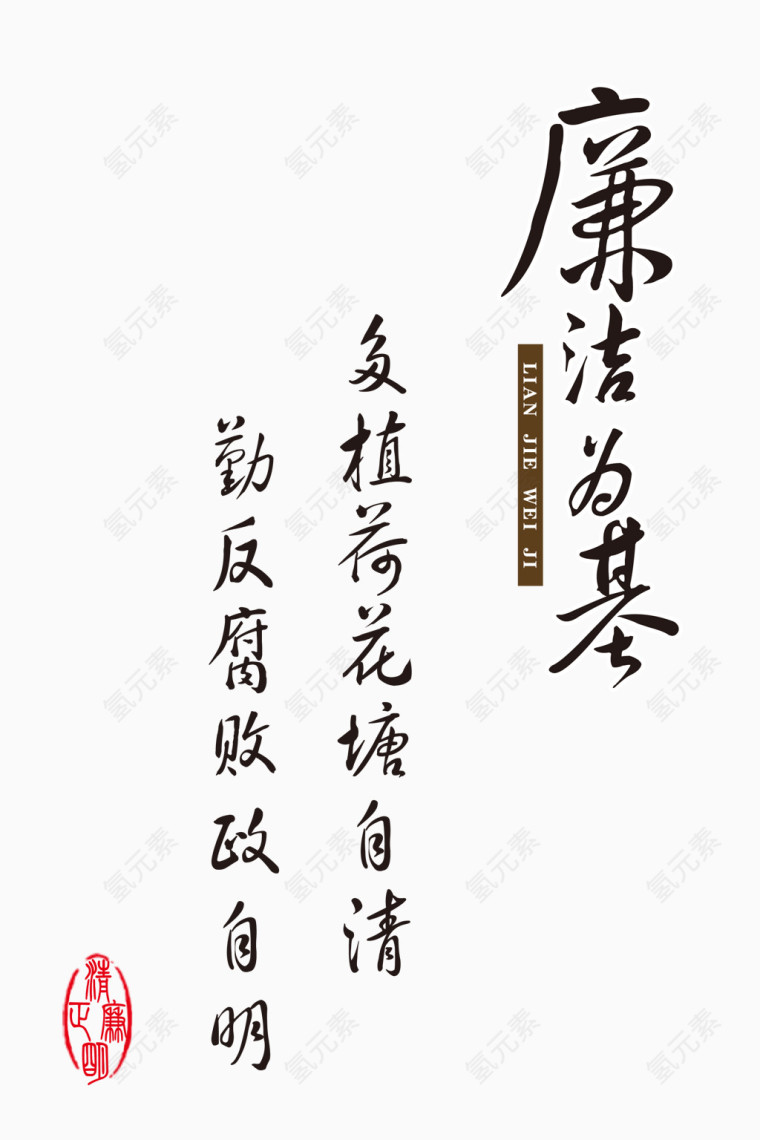 廉洁为基
LIAN JIE WEI JI
多植荷花塘自清
勤反腐败政自明
清廉正明
氢元素